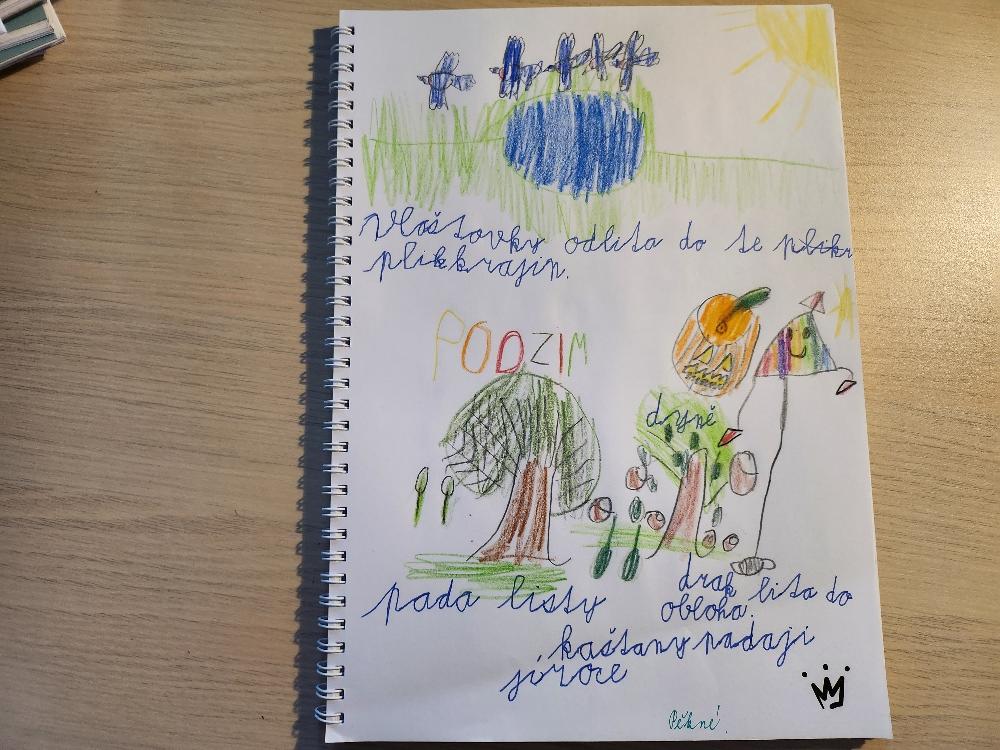 Vlaštovky odlita do te plikr
plikkrajin.
PODZIM
dyně
pada listy
drak lita do
obloha.
kaštany padaji
jíroce
Pěkné